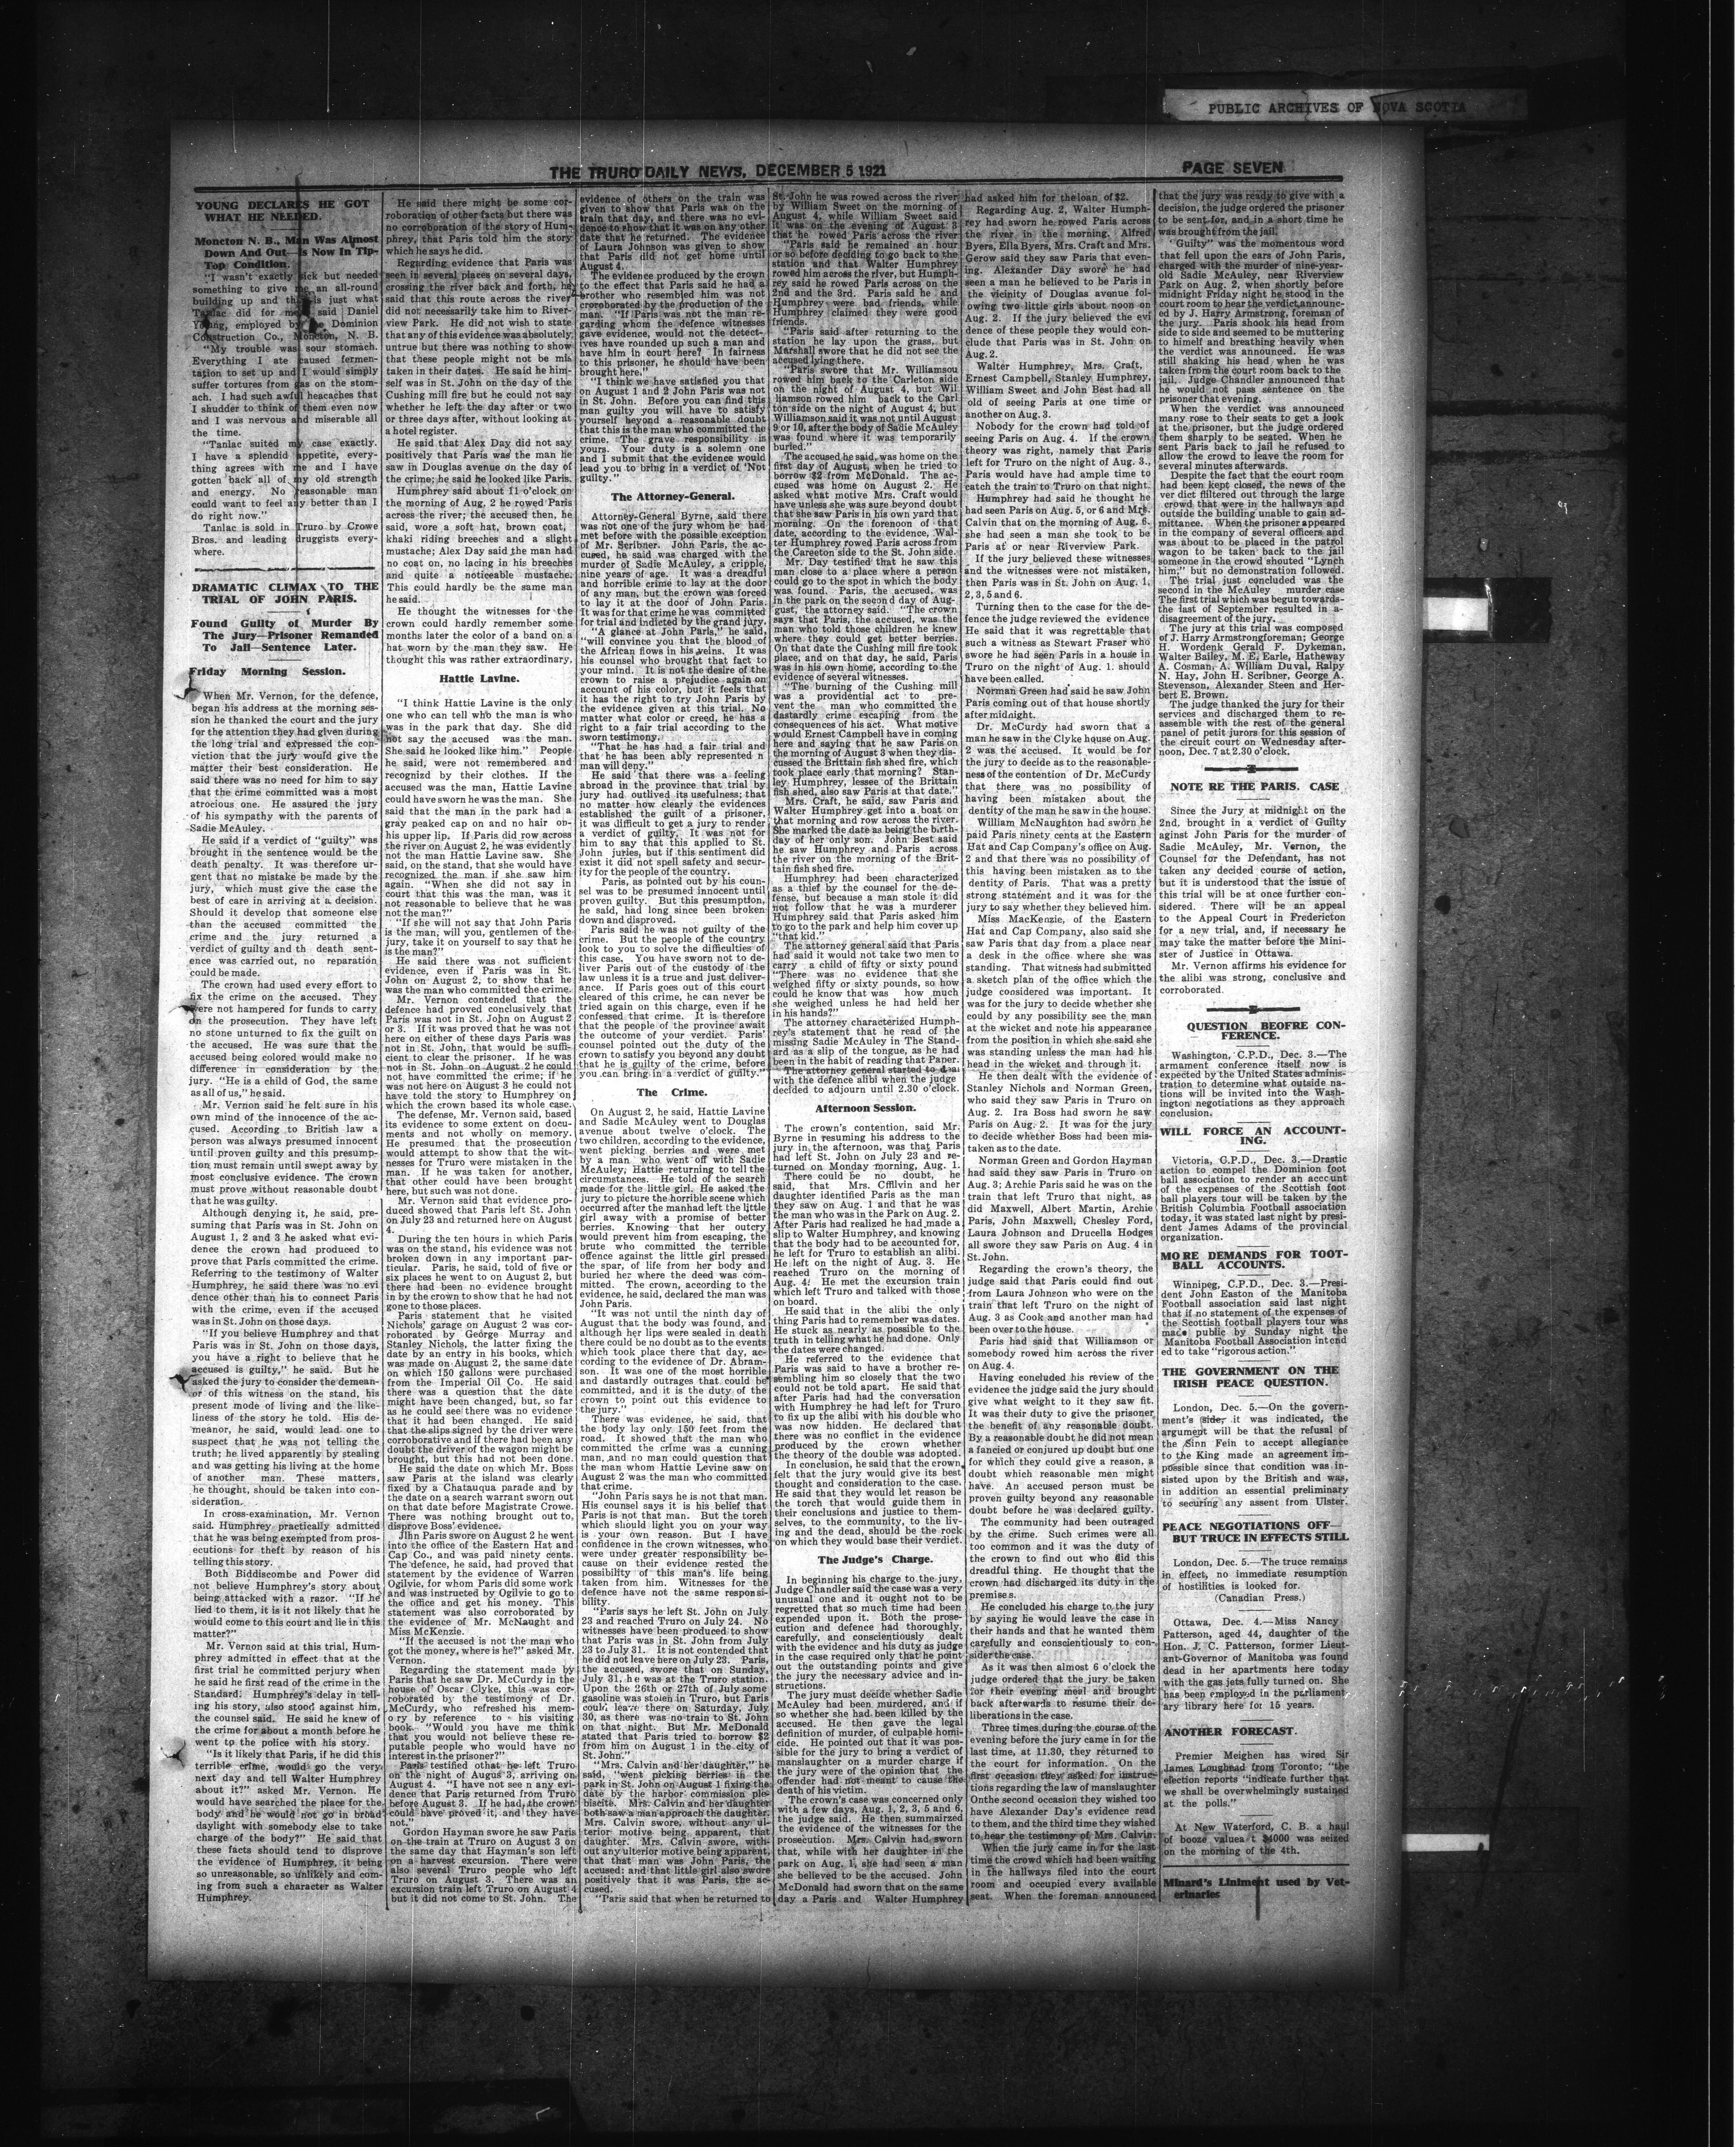 PUBLIC ARCHIVES OF NOVA SCOTIA
THE TRURO DAILY NEWS, DECEMBER 5 1921
PAGE SEVEN
YOUNG DECLARES HE GOT
WHAT HE NEEDED.
Moncton N. B., Man Was Almost
Down And Out—Is Now In Tip-
Top Condition.
"I wasn't exactly sick but needed
something to give me an all-round
building up and this is just what
Tanlac did for me," said Daniel
Young, employed by the Dominion
Construction Co., Moncton, N. B.
"My trouble was sour stomach.
Everything I ate caused fermen-
tation to set up and I would simply
suffer tortures from gas on the stom-
ach. I had such awful heacaches that
I shudder to think of them even now
and I was nervous and miserable all
the time.
"Tanlac suited my case exactly.
I have a splendid appetite, every-
thing agrees with me and I have
gotten back all of my old strength
and energy. No reasonable man
could want to feel any better than I
do right now."
Tanlac is sold in Truro by Crowe
Bros. and leading druggists every-
where.
DRAMATIC CLIMAX TO THE
TRIAL OF JOHN PARIS.
Found Guilty of Murder By
The Jury—Prisoner Remanded
To Jail—Sentence Later.
Friday Morning Session.
When Mr. Vernon, for the defence,
began his address at the morning ses-
sion he thanked the court and the jury
for the attention they had given during
the long trial and expressed the con-
viction that the jury would give the
matter their best consideration. He
said there was no need for him to say
that the crime committed was a most
atrocious one. He assured the jury
of his sympathy with the parents of
Sadie McAuley.
He said if a verdict of "guilty" was
brought in the sentence would be the
death penalty. It was therefore ur-
gent that no mistake be made by the
jury, which must give the case the
best of care in arriving at a decision.
Should it develop that someone else
than the accused committed the
crime and the jury returned a
verdict of guilty and th death sent-
ence was carried out, no reparation
could be made.
The crown had used every effort to
fix the crime on the accused. They
were not hampered for funds to carry
on the prosecution. They have left
no stone unturned to fix the guilt on
the accused. He was sure that the
accused being colored would make no
difference in consideration by the
jury. "He is a child of God, the same
as all of us," he said.
Mr. Vernon said he felt sure in his
own mind of the innocence of the ac-
cused. According to British law a
person was always presumed innocent
until proven guilty and this presump-
tion must remain until swept away by
most conclusive evidence. The crown
must prove without reasonable doubt
that he was guilty.
Although denying it, he said, pre-
suming that Paris was in St. John on
August 1, 2 and 3 he asked what evi-
dence the crown had produced to
prove that Paris committed the crime.
Referring to the testimony of Walter
Humphrey, he said there was no evi
dence other than his to connect Paris
with the crime, even if the accused
was in St. John on those days.
"If you believe Humphrey and that
Paris was in St. John on those days,
you have a right to believe that he
accused is guilty," he said. But he
asked the jury to consider the demean-
or of this witness on the stand, his
present mode of living and the like-
liness of the story he told. His de-
meanor, he said, would lead one to
suspect that he was not telling the
truth; he lived apparently by stealing
and was getting his living at the home
of another man. These matters,
he thought, should be taken into con-
sideration.
In cross-examination, Mr. Vernon
said. Humphrey practically admitted
that he was being exempted from pros-
ecutions for theft by reason of his
telling this story.
Both Biddiscombe and Power did
not believe Humphrey's story about
being attacked with a razor. "If he
lied to them, it is it not likely that he
would come to this court and lie in this
matter?"
Mr. Vernon said at this trial, Hum-
phrey admitted in effect that at the
first trial he committed perjury when
he said he first read of the crime in the
Standard. Humphrey's delay in tell-
ing his story, also stood against him,
the counsel said. He said he knew of
the crime for about a month before he
went to the police with his story.
"Is it likely that Paris, if he did this
terrible crime, would go the very
next day and tell Walter Humphrey
about it?" asked Mr. Vernon. He
would have searched the place for the
body and he would not go in broad
daylight with somebody else to take
charge of the body?" He said that
these facts should tend to disprove
the evidence of Humphrey, it being
so unreasonable, so unlikely and com-
ing from such a character as Walter
Humphrey.
He said there might be some cor-
roboration of other facts but there was
no corroboration of the story of Hum-
phrey, that Paris told him the story
which he says he did.
Regarding evidence that Paris was
seen in several places on several days,
crossing the river back and forth, he
said that this route across the river
did not necessarily take him to River-
view Park. He did not wish to state
that any of this evidence was absolutely
untrue but there was nothing to show
that these people might not be mis
taken in their dates. He said he him-
self was in St. John on the day of the
Cushing mill fire but he could not say
whether he left the day after or two
or three days after, without looking at
a hotel register.
He said that Alex Day did not say
positively that Paris was the man he
saw in Douglas avenue on the day of
the crime; he said he looked like Paris.
Humphrey said about 11 o'clock on
the morning of Aug. 2 he rowed Paris
across the river; the accused then, he
said, wore a soft hat, brown coat,
khaki riding breeches and a slight
mustache; Alex Day said the man had
no coat on, no lacing in his breeches
and quite a noticeable mustache.
This could hardly be the same man
he said.
He thought the witnesses for the
crown could hardly remember some
months later the color of a band on a
hat worn by the man they saw. He
thought this was rather extraordinary.
Hattie Lavine.
"I think Hattie Lavine is the only
one who can tell who the man is who
was in the park that day. She did
not say the accused was the man.
She said he looked like him." People
he said, were not remembered and
recognizd by their clothes. If the
accused was the man, Hattie Lavine
could have sworn he was the man. She
said that the man in the park had a
gray peaked cap on and no hair on-
his upper lip. If Paris did row across
the river on August 2, he was evidently
not the man Hattie Lavine saw. She
said, on the stand, that she would have
recognized the man if she saw him
again. "When she did not say in
court that this was the man, was it
not reasonable to believe that he was
not the man?"
"If she will not say that John Paris
is the man, will you, gentlemen of the
jury, take it on yourself to say that he
is the man?"
He said there was not sufficient
evidence, even if Paris was in St.
John on August 2, to show that he
was the man who committed the crime.
Mr. Vernon contended that the
defence had proved conclusively that
Paris was not in St. John on August 2
or 3. If it was proved that he was not
here on either of these days Paris was
not in St. John, that would be suffi-
cient to clear the prisoner. If he was
not in St. John on August 2 he could
not have committed the crime; if he
was not here on August 3 he could not
have told the story to Humphrey on
which the crown based its whole case.
The defense, Mr. Vernon said, based
its evidence to some extent on docu-
ments and not wholly on memory.
He presumed that the prosecution
would attempt to show that the wit-
nesses for Truro were mistaken in the
man. If he was taken for another,
that other could have been brought
here, but such was not done.
Mr. Vernon said that evidence pro-
duced showed that Paris left St. John
on July 23 and returned here on August
4.
During the ten hours in which Paris
was on the stand, his evidence was not
broken down in any important par-
ticular. Paris, he said, told of five or
six places he went to on August 2, but
there had been no evidence brought
in by the crown to show that he had not
gone to those places.
Paris statement that he visited
Nichols' garage on August 2 was cor-
roborated by George Murray and
Stanley Nichols, the latter fixing the
date by an entry in his books, which
was made on August 2, the same date
on which 150 gallons were purchased
from the Imperial Oil Co. He said
there was a question that the date
might have been changed, but, so far
as he could see there was no evidence
that it had been changed. He said
that the slips signed by the driver were
corroborative and if there had been any
doubt the driver of the wagon might be
brought, but this had not been done.
He said the date on which Mr. Boss
saw Paris at the island was clearly
fixed by a Chatauqua parade and by
the date on a search warrant sworn out
on that date before Magistrate Crowe.
There was nothing brought out to,
disprove Boss' evidence.
Jihn Paris swore on August 2 he went
into the office of the Eastern Hat and
Cap Co., and was paid ninety cents.
The defence, he said, had proved that
statement by the evidence of Warren
Ogilvie, for whom Paris did some work
and was instructed by Ogilvie to go to
the office and get his money. This
statement was also corroborated by
the evidence of Mr. McNaught and
Miss McKenzie.
"If the accused is not the man who
got the money, where is he?" asked Mr.
Vernon.
Regarding the statement made by
Paris that he saw Dr. McCurdy in the
house of Oscar Clyke, this was cor-
roborated by the testimony of Dr.
McCurdy, who refreshed his mem-
ory by reference to his visiting
book. "Would you have me think
that you would not believe these re-
putable people who would have no
interest in the prisoner?"
Paris testified othat he left Truro
on the night of Augus 3, arriving on
August 4. "I have not see n any evi-
dence that Paris returned from Truro
before August 3. If he had, the crown
could have proved it, and they have
not."
Gordon Hayman swore he saw Paris
on the train at Truro on August 3 on
the same day that Hayman's son left
on a harvest excursion. There were
also several Truro people who left
Truro on August 3. There was an
excursion train left Truro on August 4
but it did not come to St. John. The
evidence of others on the train was
given to show that Paris was on the
train that day, and there was no evi-
dence to show that it was on any other
date that he returned. The evidence
of Laura Johnson was given to show
that Paris did not get home until
August 4.
The evidence produced by the crown
to the effect that Paris said he had a
brother who resembled him was not
croroborated by the production of the
man. "If Paris was not the man re-
garding whom the defence witnesses
gave evidence, would not the detect-
ives have rounded up such a man and
have him in court here? In fairness
to this prisoner, he should have been
brought here."
"I think we have satisfied you that
on August 1 and 2 John Paris was not
in St. John. Before you can find this
man guilty you will have to satisfy
yourself beyond a reasonable doubt
that this is the man who committed the
crime. The grave responsibility is
yours. Your duty is a solemn one
and I submit that the evidence would
lead you to bring in a verdict of 'Not
guilty.'"
The Attorney-General.
Attorney-General Byrne, said there
was not one of the jury whom he had
met before with the possible exception
of Mr. Scribner. John Paris, the ac-
cused, he said was charged with the
murder of Sadie McAuley, a cripple,
nine years of age. It was a dreadful
and horrible crime to lay at the door
of any man, but the crown was forced
to lay it at the door of John Paris.
It was for that crime he was committed
for trial and indicted by the grand jury.
"A glance at John Paris," he said,
"will convince you that the blood of
the African flows in his veins. It was
his counsel who brought that fact to
your mind. It is not the desire of the
crown to raise a prejudice again on
account of his color, but it feels that
it has the right to try John Paris by
the evidence given at this trial. No
matter what color or creed, he has a
right to a fair trial according to the
sworn testimony.
"That he has had a fair trial and
that he has been ably represented n
man will deny."
He said that there was a feeling
abroad in the province that trial by
jury had outlived its usefulness; that
no matter how clearly the evidences
established the guilt of a prisoner,
it was difficult to get a jury to render
a verdict of guilty. It was not for
him to say that this applied to St.
John juries, but if this sentiment did
exist it did not spell safety and secur-
ity for the people of the country.
Paris, as pointed out by his coun-
sel was to be presumed innocent until
proven guilty. But this presumption,
he said, had long since been broken
down and disproved.
Paris said he was not guilty of the
crime. But the people of the country
look to you to solve the difficulties of
this case. You have sworn not to de-
liver Paris out of the custody of the
law unless it is a true and just deliver-
ance. If Paris goes out of this court
cleared of this crime, he can never be
tried again on this charge, even if he
confessed that crime. It is therefore
that the people of the province await
the outcome of your verdict. Paris'
counsel pointed out the duty of the
crown to satisfy you beyond any doubt
that he is guilty of the crime, before
you can bring in a verdict of guilty."
The Crime.
On August 2, he said, Hattie Lavine
and Sadie McAuley went to Douglas
avenue about twelve o'clock. The
two children, according to the evidence,
went picking berries and were met
by a man who went off with Sadie
McAuley; Hattie returning to tell the
circumstances. He told of the search
made for the little girl. He asked the
jury to picture the horrible scene which
occurred after the manhad left the little
girl away with a promise of better
berries. Knowing that her outcry
would prevent him from escaping, the
brute who committed the terrible
offence against the little girl pressed
the spar, of life from her body and
buried her where the deed was com-
mitted. The crown, according to the
evidence, he said, declared the man was
John Paris.
"It was not until the ninth day of
August that the body was found, and
although her lips were sealed in death
there could be no doubt as to the events
which took place there that day, ac-
cording to the evidence of Dr. Abram-
son. It was one of the most horrible
and dastardly outrages that could be
committed, and it is the duty of the
crown to point out this evidence to
the jury."
There was evidence, he said, that
the body lay only 150 feet from the
road. It showed that the man who
committed the crime was a cunning
man, and no man could question that
the man whom Hattie Levine saw on
August 2 was the man who committed
that crime.
"John Paris says he is not that man.
His counsel says it is his belief that
Paris is not that man. But the torch
which should light you on your way
is your own reason. But I have
confidence in the crown witnesses, who
were under greater responsibility be-
cause on their evidence rested the
possibility of this man's life being
taken from him. Witnesses for the
defence have not the same responsi-
bility.
"Paris says he left St. John on July
23 and reached Truro on July 24. No
witnesses have been produced to show
that Paris was in St. John from July
23 to July 31. It is not contended that
he did not leave here on July 23. Paris,
the accused, swore that on Sunday,
July 31, he was at the Truro station.
Upon the 26th or 27th of July some
gasoline was stolen in Truro, but Paris
could leave there on Saturday, July
30, as there was no train to St. John
on that night. But Mr. McDonald
stated that Paris tried to borrow $2
from him on August 1 in the city of
St. John."
"Mrs. Calvin and her daughter," he
said, "went picking berries in the
park in St. John on August 1 fixing the
date by the harbor commission ple-
biscite. Mrs. Calvin and her daughter
both saw a man approach the daughter.
Mrs. Calvin swore, without any ul-
terior motive being apparent, that
daughter. Mrs. Calvin swore, with-
out any ulterior motive being apparent,
that that man was John Paris, the
accused: and that little girl also swore
positively that it was Paris, the ac-
cused.
"Paris said that when he returned to
St. John he was rowed across the river
by William Sweet on the morning of
August 4, while William Sweet said
it was on the evening of August 3
that he rowed Paris across the river
"Paris said he remained an hour
or so before deciding to go back to the
station and that Walter Humphrey
rowed him across the river, but Humph-
rey said he rowed Paris across on the
2nd and the 3rd. Paris said he and
Humphrey were bad friends, while
Humphrey claimed they were good
friends.
"Paris said after returning to the
station he lay upon the grass, but
Marshall swore that he did not see the
accused lying there.
"Paris swore that Mr. Williamsou
rowed him back to the Carleton side
on the night of August 4, but Wil
liamson rowed him back to the Carl
ton side on the night of August 4; but
Williamson said it was not until August
9 or 10, after the body of Sadie McAuley
was found where it was temporarily
buried."
The accused he said, was home on the
first day of August, when he tried to
borrow $2 from McDonald. The ac-
cused was home on August 2. He
asked what motive Mrs. Craft would
have unless she was sure beyond doubt
that she saw Paris in his own yard that
morning. On the forenoon of that
date, according to the evidence, Wal-
ter Humphrey rowed Paris across from
the Careeton side to the St. John side.
Mr. Day testified that he saw this
man close to a place where a person
could go to the spot in which the body
was found. Paris, the accused, was
in the park on the secon d day of Aug-
gust, the attorney said. "The crown
says that Paris, the accused, was the
man who told those children he knew
where they could get better berries.
On that date the Cushing mill fire took
place, and on that day, he said, Paris
was in his own home, according to the
evidence of several witnesses.
"The burning of the Cushing mill
was a providential act to pre-
vent the man who committed the
dastardly crime escaping from the
consequences of his act. What motive
would Ernest Campbell have in coming
here and saying that he saw Paris on
the morning of August 3 when they dis-
cussed the Brittain fish shed fire, which
took place early that morning? Stan-
ley Humphrey, lessee of the Brittain
fish shed, also saw Paris at that date."
Mrs. Craft, he said, saw Paris and
Walter Humphrey get into a boat on
that morning and row across the river.
She marked the date as being the birth-
day of her only son. John Best said
he saw Humphrey and Paris across
the river on the morning of the Brit-
tain fish shed fire.
Humphrey had been characterized
as a thief by the counsel for the de-
fense, but because a man stole it did
not follow that he was a murderer
Humphrey said that Paris asked him
to go to the park and help him cover up
"that kid."
The attorney general said that Paris
had said it would not take two men to
carry a child of fifty or sixty pound
"There was no evidence that she
weighed fifty or sixty pounds, so how
could he know that was how much
she weighed unless he had held her
in his hands?"
The attorney characterized Humph-
rey's statement that he read of the
missing Sadie McAuley in The Stand-
ard as a slip of the tongue, as he had
been in the habit of reading that Paper.
The attorney general started to deal
with the defence alibi when the judge
decided to adjourn until 2.30 o'clock.
Afternoon Session.
The crown's contention, said Mr.
Byrne in resuming his address to the
jury in the afternoon, was that Paris
had left St. John on July 23 and re-
turned on Monday morning, Aug. 1.
There could be no doubt, he
said, that Mrs. Cfflvin and her
daughter identified Paris as the man
they saw on Aug. 1 and that he was
the man who was in the Park on Aug. 2.
After Paris had realized he had made a
slip to Walter Humphrey, and knowing
that the body had to be accounted for,
he left for Truro to establish an alibi.
He left on the night of Aug. 3. He
reached Truro on the morning of
Aug. 4. He met the excursion train
which left Truro and talked with those
on board.
He said that in the alibi the only
thing Paris had to remember was dates.
He stuck as nearly as possible to the
truth in telling what he had done. Only
the dates were changed.
He referred to the evidence that
Paris was said to have a brother re-
sembling him so closely that the two
could not be told apart. He said that
after Paris had had the conversation
with Humphrey he had left for Truro
to fix up the alibi with his double who
was now hidden. He declared that
there was no conflict in the evidence
produced by the crown whether
the theory of the double was adopted.
In conclusion, he said that the crown
felt that the jury would give its best
thought and consideration to the case.
He said that they would let reason be
the torch that would guide them in
their conclusions and justice to them-
selves, to the community, to the liv-
ing and the dead, should be the rock
on which they would base their verdict.
The Judge's Charge.
In beginning his charge to the jury,
Judge Chandler said the case was a very
unusual one and it ought not to be
regretted that so much time had been
expended upon it. Both the prose-
cution and defence had thoroughly,
carefully, and conscientiously dealt
with the evidence and his duty as judge
in the case required only that he point
out the outstanding points and give
the jury the necessary advice and in-
structions.
The jury must decide whether Sadie
McAuley had been murdered, and if
so whether she had been killed by the
accused. He then gave the legal
definition of murder, of culpable homi-
cide. He pointed out that it was pos-
sible for the jury to bring a verdict of
manslaughter on a murder charge if
the jury were of the opinion that the
offender had not meant to cause the
death of his victim.
The crown's case was concerned only
with a few days, Aug. 1, 2, 3, 5 and 6,
the judge said. He then summairzed
the evidence of the witnesses for the
prosecution. Mrs. Calvin had sworn
that, while with her daughter in the
park on Aug. 1, she had seen a man
she believed to be the accused. John
McDonald had sworn that on the same
day a Paris and Walter Humphrey
had asked him for the loan of $2.
Regarding Aug. 2, Walter Humph-
rey had sworn he rowed Paris across
the river in the morning. Alfred
Byers, Ella Byers, Mrs. Craft and Mrs.
Gerow said they saw Paris that even-
ing. Alexander Day swore he had
seen a man he believed to be Paris in
the vicinity of Douglas avenue fol-
owing two little girls about noon on
Aug. 2. If the jury believed the evi
dence of these people they would con-
clude that Paris was in St. John on
Aug. 2.
Walter Humphrey, Mrs. Craft,
Ernest Campbell, Stanley Humphrey,
William Sweet and John Best had all
old of seeing Paris at one time or
another on Aug. 3.
Nobody for the crown had told of
seeing Paris on Aug. 4. If the crown
theory was right, namely that Paris
left for Truro on the night of Aug. 3.,
Paris would have had ample time to
catch the train to Truro on that night.
Humphrey had said he thought he
had seen Paris on Aug. 5, or 6 and Mrs.
Calvin that on the morning of Aug. 6.
she had seen a man she took to be
Paris at or near Riverview Park.
If the jury believed these witnesses
and the witnesses were not mistaken,
then Paris was in St. John on Aug. 1,
2, 3, 5 and 6.
Turning then to the case for the de-
fence the judge reviewed the evidence
He said that it was regrettable that
such a witness as Stewart Fraser who
swore he had seen Paris in a house in
Truro on the night of Aug. 1. should
have been called.
Norman Green had said he saw John
Paris coming out of that house shortly
after midnight.
Dr. McCurdy had sworn that a
man he saw in the Clyke house on Aug.
2 was the accused. It would be for
the jury to decide as to the reasonable-
ness of the contention of Dr. McCurdy
that there was no possibility of
having been mistaken about the
dentity of the man he saw in the house.
William McNaughton had sworn he
paid Paris ninety cents at the Eastern
Hat and Cap Company's office on Aug.
2 and that there was no possibility of
this having been mistaken as to the
dentity of Paris. That was a pretty
strong statement and it was for the
jury to say whether they believed him.
Miss MacKenzie, of the Eastern
Hat and Cap Company, also said she
saw Paris that day from a place near
a desk in the office where she was
standing. That witness had submitted
a sketch plan of the office which the
judge considered was important. It
was for the jury to decide whether she
could by any possibility see the man
at the wicket and note his appearance
from the position in which she said she
was standing unless the man had his
head in the wicket and through it.
He then dealt with the evidence of
Stanley Nichols and Norman Green,
who said they saw Paris in Truro on
Aug. 2. Ira Boss had sworn he saw
Paris on Aug. 2. It was for the jury
to decide whether Boss had been mis-
taken as to the date.
Norman Green and Gordon Hayman
had said they saw Paris in Truro on
Aug. 3; Archie Paris said he was on the
train that left Truro that night, as
did Maxwell, Albert Martin, Archie
Paris, John Maxwell, Chesley Ford,
Laura Johnson and Drucella Hodges
all swore they saw Paris on Aug. 4 in
St. John.
Regarding the crown's theory, the
judge said that Paris could find out
from Laura Johnson who were on the
train that left Truro on the night of
Aug. 3 as Cook and another man had
been over to the house.
Paris had said that Williamson or
somebody rowed him across the river
on Aug. 4.
Having concluded his review of the
evidence the judge said the jury should
give what weight to it they saw fit.
It was their duty to give the prisoner
the benefit of any reasonable doubt.
By a reasonable doubt he did not mean
a fancied or conjured up doubt but one
for which they could give a reason, a
doubt which reasonable men might
have. An accused person must be
proven guilty beyond any reasonable
doubt before he was declared guilty.
The community had been outraged
by the crime. Such crimes were all
too common and it was the duty of
the crown to find out who did this
dreadful thing. He thought that the
crown had discharged its duty in the
premises.
He concluded his charge to the jury
by saying he would leave the case in
their hands and that he wanted them
carefully and conscientiously to con-
sider the case.
As it was then almost 6 o'clock the
judge ordered that the jury be taken
for their evening meal and brought
back afterwards to resume their de-
liberations in the case.
Three times during the course of the
evening before the jury came in for the
last time, at 11.30, they returned to
the court for information. On the
first occasion they asked for instruc-
tions regarding the law of manslaughter
Onthe second occasion they wished too
have Alexander Day's evidence read
to them, and the third time they wished
to hear the testimony of Mrs. Calvin.
When the jury came in for the last
time the crowd which had been waiting
in the hallways filed into the court
room and occupied every available
seat. When the foreman announced
that the jury was ready to give with a
decision, the judge ordered the prisoner
to be sent for, and in a short time he
was brought from the jail.
"Guilty" was the momentous word
that fell upon the ears of John Paris,
charged with the murder of nine-year-
old Sadie McAuley, near Riverview
Park on Aug. 2, when shortly before
midnight Friday night he stood in the
court room to hear the verdict announc-
ed by J. Harry Armstrong, foreman of
the jury. Paris shook his head from
side to side and seemed to be muttering
to himself and breathing heavily when
the verdict was announced. He was
still shaking his head when he was
taken from the court room back to the
jail. Judge Chandler announced that
he would not pass sentence on the
prisoner that evening.
When the verdict was announced
many rose to their seats to get a look
at the prisoner, but the judge ordered
them sharply to be seated. When he
sent Paris back to jail he refused to
allow the crowd to leave the room for
several minutes afterwards.
Despite the fact that the court room
had been kept closed, the news of the
ver dict fliltered out through the large
crowd that were in the hallways and
outside the building unable to gain ad-
mittance. When the prisoner appeared
in the company of several officers and
was about to be placed in the patrol
wagon to be taken back to the jail
someone in the crowd shouted "Lynch
him," but no demonstration followed.
The trial just concluded was the
second in the McAuley murder case
The first trial which was begun towards-
the last of September resulted in a-
disagreement of the jury.
The jury at this trial was composed
of J. Harry Armstrongforeman; George
H. Wordenk Gerald F. Dykeman,
Walter Bailey, M. E. Earle, Hatheway
A. Cosman, A. William Duval, Ralpy
N. Hay, John H. Scribner, George A.
Stevenson, Alexander Steen and Her-
bert E. Brown.
The judge thanked the jury for their
services and discharged them to re-
assemble with the rest of the general
panel of petit jurors for this session of
the circuit court on Wednesday after-
noon, Dec. 7 at 2.30 o'clock.
NOTE RE THE PARIS. CASE
Since the Jury at midnight on the
2nd. brought in a verdict of Guilty
against John Paris for the murder of
Sadie McAuley, Mr. Vernon, the
Counsel for the Defendant, has not
taken any decided course of action,
but it is understood that the issue of
this trial will be at once further con-
sidered. There will be an appeal
to the Appeal Court in Fredericton
for a new trial, and, if necessary he
may take the matter before the Mini-
ster of Justice in Ottawa.
Mr. Vernon affirms his evidence for
the alibi was strong, conclusive and
corroborated.
QUESTION BEOFRE CON-
FERENCE.
Washington, C.P.D., Dec. 3.—The
armament conference itself now is
expected by the United States adminis-
tration to determine what outside na-
tions will be invited into the Wash-
ington negotiations as they approach
conclusion.
WILL FORCE AN ACCOUNT-
ING.
Victoria, C.P.D., Dec. 3.—Drastic
action to compel the Dominion foot
ball association to render an account
of the expenses of the Scottish foot
ball players tour will be taken by the
British Columbia Football association
today, it was stated last night by presi-
dent James Adams of the provincial
organization.
MORE DEMANDS FOR TOOT-
BALL ACCOUNTS.
Winnipeg, C.P.D., Dec. 3.—Presi-
dent John Easton of the Manitoba
Football association said last night
that if no statement of the expenses of
the Scottish football players tour was
made public by Sunday night the
Manitoba Football Association intend
ed to take "rigorous action."
THE GOVERNMENT ON THE
IRISH PEACE QUESTION.
London, Dec. 5.—On the govern-
ment's side, it was indicated, the
argument will be that the refusal of
the Sinn Fein to accept allegiance
to the King made an agreement im-
possible since that condition was in-
sisted upon by the British and was,
in addition an essential preliminary
to securing any assent from Ulster.
PEACE NEGOTIATIONS OFF—
BUT TRUCE IN EFFECTS STILL
London, Dec. 5.—The truce remains
in effect, no immediate resumption
of hostilities is looked for.
(Canadian Press.)
Ottawa, Dec. 4.—Miss Nancy
Patterson, aged 44, daughter of the
Hon. J. C. Patterson, former Lieut-
ant-Governor of Manitoba was found
dead in her apartments here today
with the gas jets fully turned on. She
has been employed in the parliament
ary library here for 15 years.
ANOTHER FORECAST.
Premier Meighen has wired Sir
James Lougheed from Toronto; "the
election reports "indicate further that
we shall be overwhelmingly sustained
at the polls."
At New Waterford, C. B. a haul
of booze value at $4000 was seized
on the morning of the 4th.
Minard's Liniment used by Vet-
erinaries